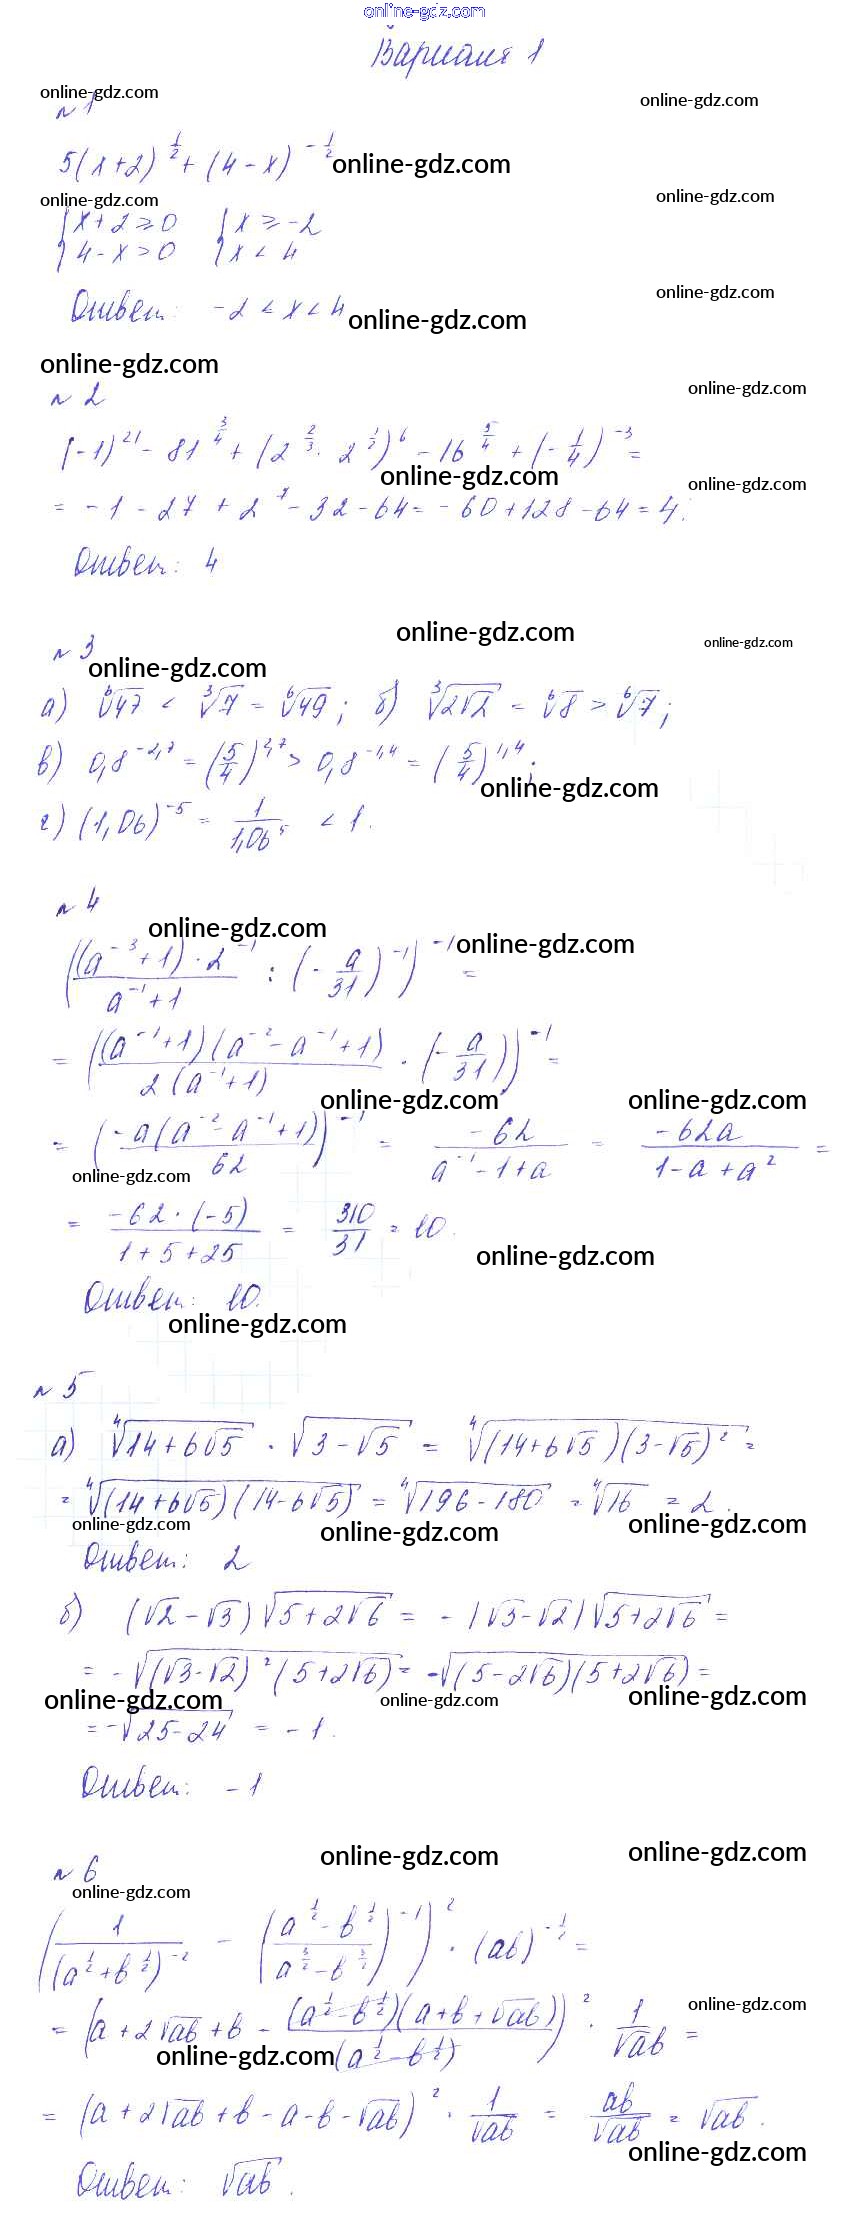 online-gdz.com
Вариант 1
online-gdz.com
online-gdz.com
№ 1
5(x+2)^{1/2} + (4-x)^{-1/2}
online-gdz.com
online-gdz.com
online-gdz.com
{x+2 ≥ 0 {x ≥ -2
{4-x > 0 {x < 4
online-gdz.com
Ответ: -2 < x < 4
online-gdz.com
online-gdz.com
online-gdz.com
№ 2
(-1)^{21} - 81^{3/4} + (2^{2/3} · 2^{1/2})^6 - 16^{5/4} + (-1/4)^{-3} =
online-gdz.com
online-gdz.com
= -1 - 27 + 2^7 - 32 - 64 = -60 + 128 - 64 = 4.
Ответ: 4
online-gdz.com
online-gdz.com
№ 3
online-gdz.com
а) ⁶√47 < ³√7 = ⁶√49; б) ³√(2√2) = ⁶√8 > ⁶√7;
в) 0,8^{-2,7} = (5/4)^{2,7} > 0,8^{-1,4} = (5/4)^{1,4};
online-gdz.com
г) (1,06)^{-5} = 1/1,06^5 < 1.
№ 4
online-gdz.com
online-gdz.com
(((a^{-3}+1)·2^{-1})/(a^{-1}+1) : (-a/31)^{-1})^{-1} =
= (((a^{-1}+1)(a^{-2}-a^{-1}+1))/(2(a^{-1}+1)) · (-a/31))^{-1} =
online-gdz.com
online-gdz.com
= ((-a(a^{-2}-a^{-1}+1))/62)^{-1} = -62/(a^{-1}-1+a) = -62a/(1-a+a^2) =
online-gdz.com
= (-62·(-5))/(1+5+25) = 310/31 = 10.
online-gdz.com
Ответ: 10.
online-gdz.com
№ 5
а) ⁴√(14+6√5) · √(3-√5) = ⁴√((14+6√5)(3-√5)^2) =
= ⁴√((14+6√5)(14-6√5)) = ⁴√(196-180) = ⁴√16 = 2.
online-gdz.com
online-gdz.com
online-gdz.com
Ответ: 2
б) (√2-√3)√(5+2√6) = -|√3-√2|√(5+2√6) =
= -√((√3-√2)^2(5+2√6)) = -√((5-2√6)(5+2√6)) =
online-gdz.com
online-gdz.com
online-gdz.com
= -√(25-24) = -1.
Ответ: -1
online-gdz.com
online-gdz.com
№ 6
online-gdz.com
(1/(a^{1/2}+b^{1/2})^{-2} - ((a^{1/2}-b^{1/2})/(a^{3/2}-b^{3/2}))^{-1})^2 · (ab)^{-1/2} =
online-gdz.com
= (a+2√ab+b - ((a^{1/2}-b^{1/2})(a+b+√ab))/(a^{1/2}-b^{1/2}))^2 · 1/√ab =
online-gdz.com
= (a+2√ab+b-a-b-√ab)^2 · 1/√ab = ab/√ab = √ab.
online-gdz.com
Ответ: √ab.